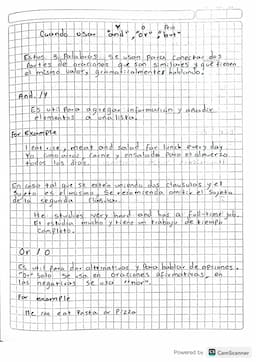 Y O Pero
Cuando usar "and", "or", "but"
Estas 3 Palabras se usan para conectar dos
Partes de oraciones que son similares y que tienen
el mismo valor, gramaticalmente hablando.
And / Y
Es util Para agregar información y añadir
elementos a una lista.
For Example
I eat rice, meat and salad for lunch every day
Yo como arroz, carne y ensalada Para el almuerzo
todos los dias.
En caso tal que se estén uniendo dos clausulas y el
Sujeto es el mismo, se recomienda omitir el sujeto
de la segunda
He studies very hard and has a full-time job.
El estudia mucho y tiene un trabajo de tiempo
completo.
Or / O
Es util Para dar alternativas y Para hablar de opciones.
"Or" Solo se usa en oraciones afirmativas, en
las negativas se usa "nor".
For example
We can eat Pasta or Pizza
Powered by CS CamScanner